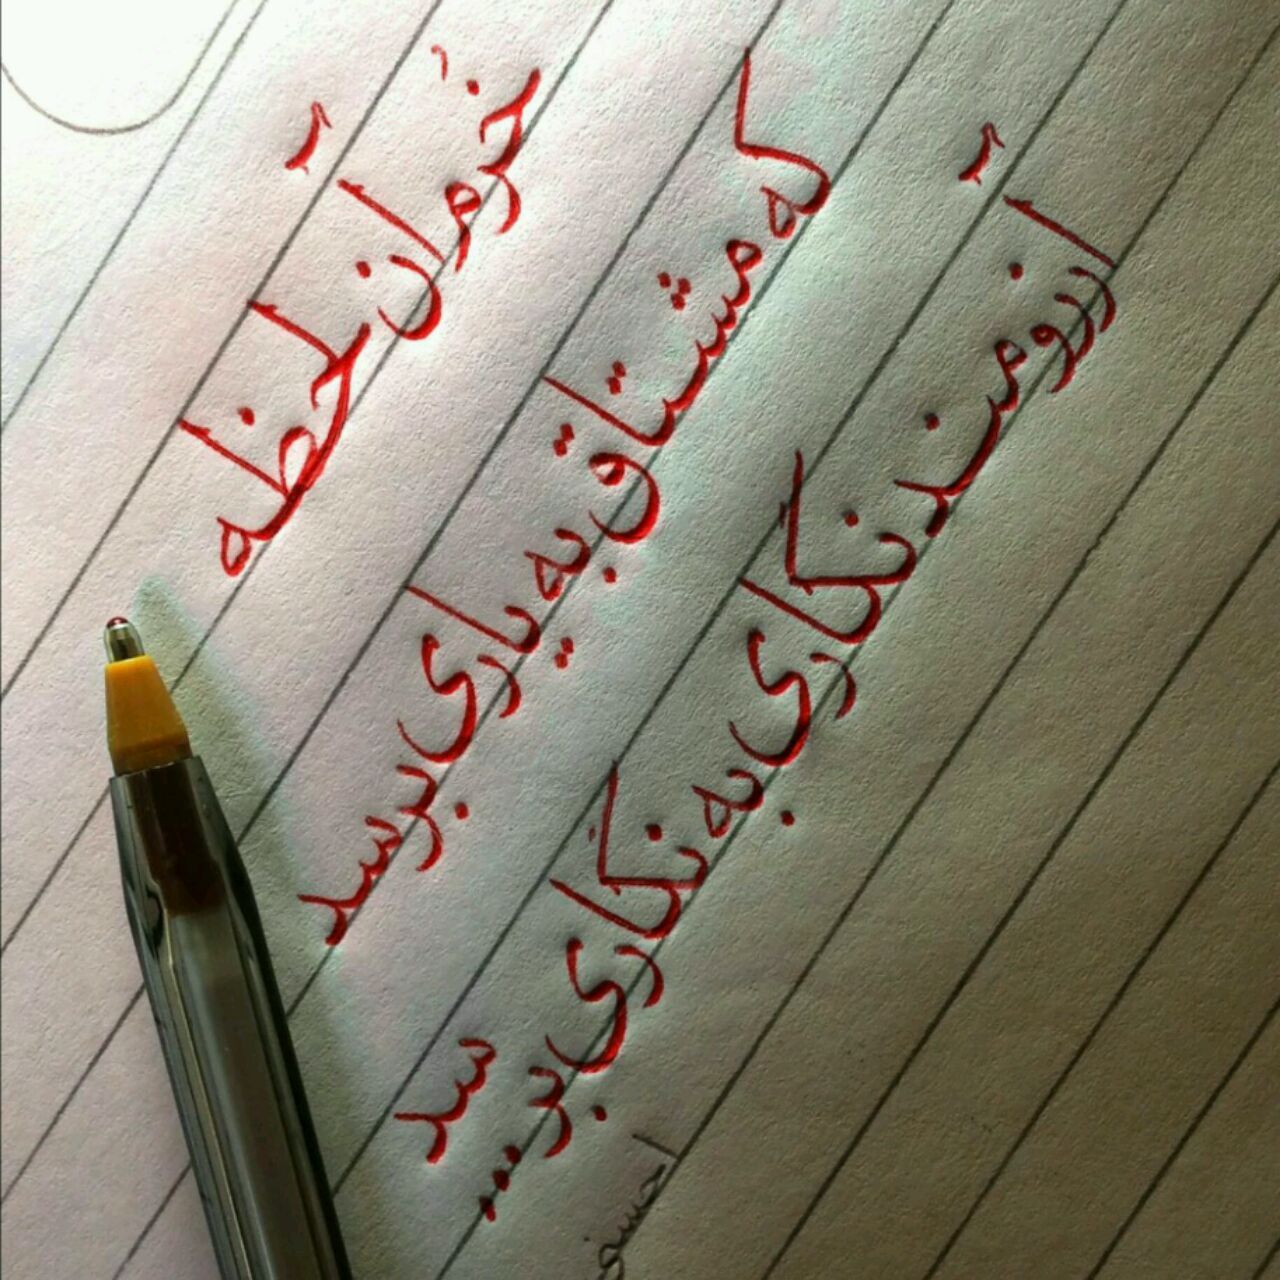 خرّم آن لحظه
که مشتاق به یاری برسد
آرزومند نگاری به نگاری بر...
سد